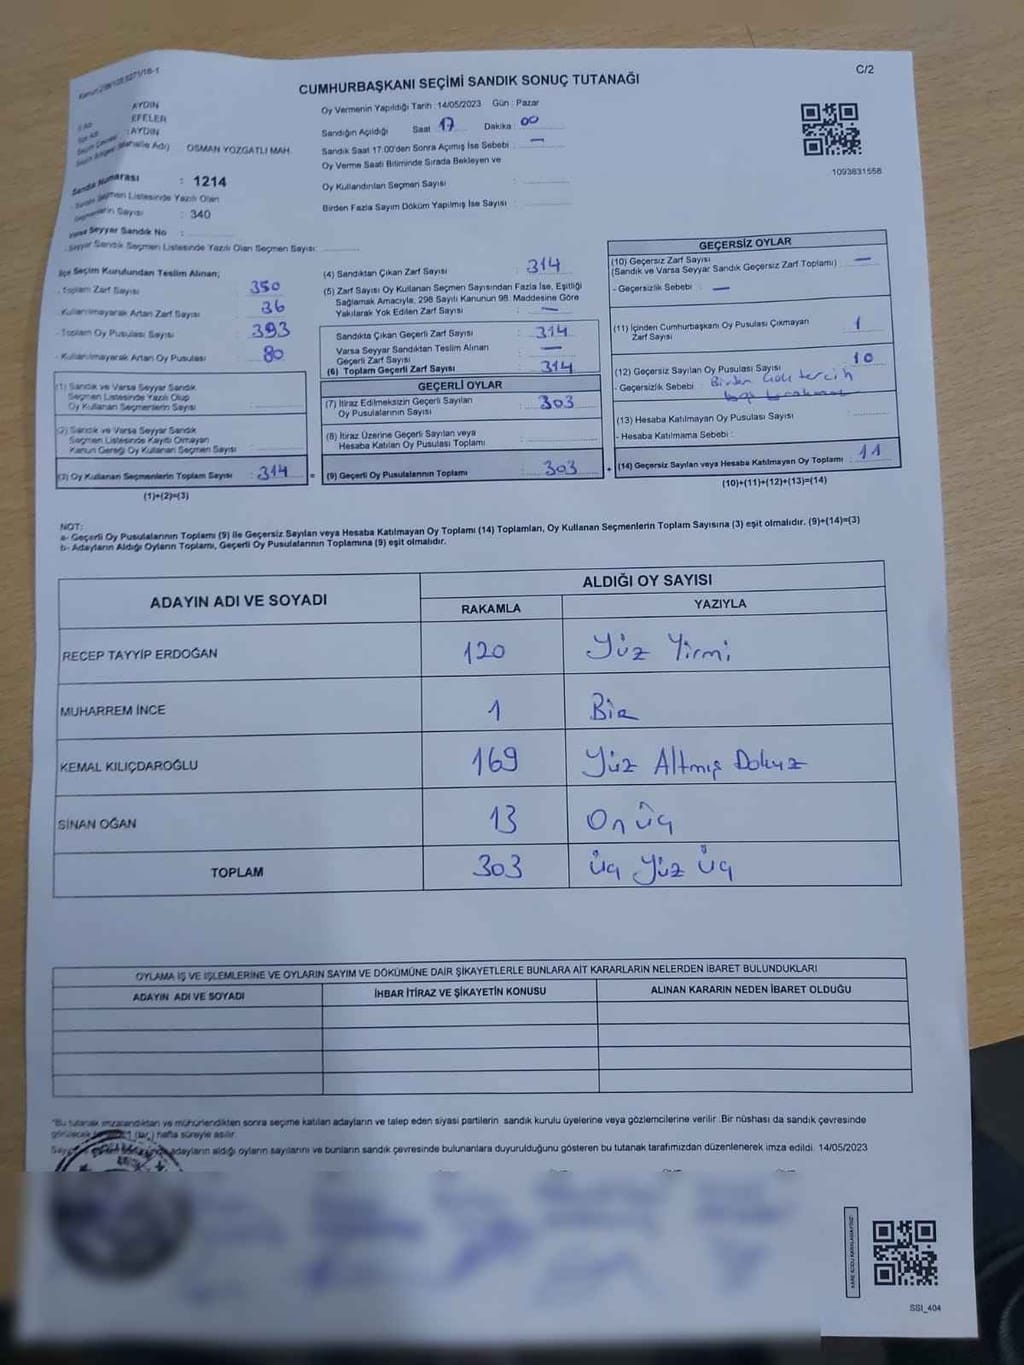 C/2
CUMHURBAŞKANI SEÇİMİ SANDIK SONUÇ TUTANAĞI
AYDIN
EFELER
AYDIN
OSMAN YOZGATLI MAH.
Sandık Numarası : 1214
Sandık Seçmen Listesinde Yazılı Olan
Seçmenlerin Sayısı : 340
Varsa Seyyar Sandık No :
Seyyar Sandık Seçmen Listesinde Yazılı Olan Seçmen Sayısı:
Oy Vermenin Yapıldığı Tarih : 14/05/2023 Gün : Pazar
Sandığın Açıldığı Saat : 17 Dakika : 00
Sandık Saat 17.00'den Sonra Açımış İse Sebebi : —
Oy Verme Saati Bitiminde Sırada Bekleyen ve
Oy Kullandırılan Seçmen Sayısı :
Birden Fazla Sayım Döküm Yapılmış İse Sayısı :
1093831558
İlçe Seçim Kurulundan Teslim Alınan;
- Toplam Zarf Sayısı : 350
- Kullanılmayarak Artan Zarf Sayısı : 36
- Toplam Oy Pusulası Sayısı : 393
- Kullanılmayarak Artan Oy Pusulası : 80
(1) Sandık ve Varsa Seyyar Sandık
Seçmen Listesinde Yazılı Olup
Oy Kullanan Seçmenlerin Sayısı :
(2) Sandık ve Varsa Seyyar Sandık
Seçmen Listesinde Kayıtlı Olmayan
Kanun Gereği Oy Kullanan Seçmen Sayısı :
(3) Oy Kullanan Seçmenlerin Toplam Sayısı : 314 =
(1)+(2)=(3)
(4) Sandıktan Çıkan Zarf Sayısı : 314
(5) Zarf Sayısı Oy Kullanan Seçmen Sayısından Fazla İse, Eşitliği
Sağlamak Amacıyla, 298 Sayılı Kanunun 98. Maddesine Göre
Yakılarak Yok Edilen Zarf Sayısı : —
Sandıkta Çıkan Geçerli Zarf Sayısı : 314
Varsa Seyyar Sandıktan Teslim Alınan
Geçerli Zarf Sayısı : —
(6) Toplam Geçerli Zarf Sayısı : 314
GEÇERLİ OYLAR
(7) İtiraz Edilmeksizin Geçerli Sayılan
Oy Pusulalarının Sayısı : 303
(8) İtiraz Üzerine Geçerli Sayılan veya
Hesaba Katılan Oy Pusulası Toplamı :
(9) Geçerli Oy Pusulalarının Toplamı : 303 +
GEÇERSİZ OYLAR
(10) Geçersiz Zarf Sayısı : —
(Sandık ve Varsa Seyyar Sandık Geçersiz Zarf Toplamı)
- Geçersizlik Sebebi : —
(11) İçinden Cumhurbaşkanı Oy Pusulası Çıkmayan
Zarf Sayısı : 1
(12) Geçersiz Sayılan Oy Pusulası Sayısı : 10
- Geçersizlik Sebebi : Birden çok tercih
(13) Hesaba Katılmayan Oy Pusulası Sayısı :
- Hesaba Katılmama Sebebi :
(14) Geçersiz Sayılan veya Hesaba Katılmayan Oy Toplamı : 11
(10)+(11)+(12)+(13)=(14)
NOT:
a- Geçerli Oy Pusulalarının Toplamı (9) ile Geçersiz Sayılan veya Hesaba Katılmayan Oy Toplamı (14) Toplamları, Oy Kullanan Seçmenlerin Toplam Sayısına (3) eşit olmalıdır. (9)+(14)=(3)
b- Adayların Aldığı Oyların Toplamı, Geçerli Oy Pusulalarının Toplamına (9) eşit olmalıdır.
ADAYIN ADI VE SOYADI ALDIĞI OY SAYISI
RAKAMLA YAZIYLA
RECEP TAYYİP ERDOĞAN 120 Yüz Yirmi
MUHARREM İNCE 1 Bir
KEMAL KILIÇDAROĞLU 169 Yüz Altmış Dokuz
SİNAN OĞAN 13 On üç
TOPLAM 303 üç Yüz üç
OYLAMA İŞ VE İŞLEMLERİNE VE OYLARIN SAYIM VE DÖKÜMÜNE DAİR ŞİKAYETLERLE BUNLARA AİT KARARLARIN NELERDEN İBARET BULUNDUKLARI
ADAYIN ADI VE SOYADI İHBAR İTİRAZ VE ŞİKAYETİN KONUSU ALINAN KARARIN NEDEN İBARET OLDUĞU
*Bu tutanak imzalandıktan ve mühürlendikten sonra seçime katılan adayların ve talep eden siyasi partilerin sandık kurulu üyelerine veya gözlemcilerine verilir. Bir nüshası da sandık çevresinde
hafta süreyle asılır.
adayların aldığı oyların sayılarını ve bunların sandık çevresinde bulunanlara duyurulduğunu gösteren bu tutanak tarafımızdan düzenlenerek imza edildi. 14/05/2023
SSI_404